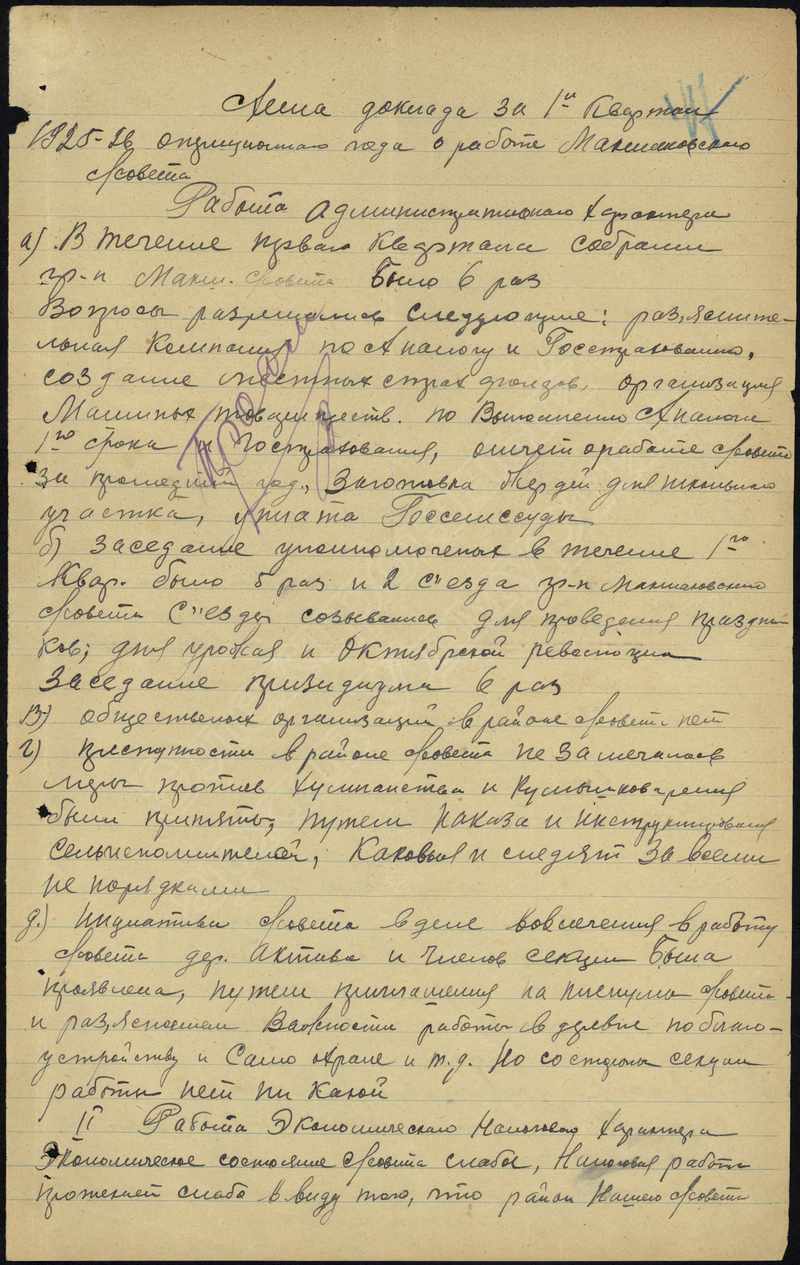 Схема доклада за 1й Квартал
1925-26 операционного года о работе Маклаковского
с/совета
Работа Административного Характера
а) В течение первого Квартала собрании
гр-н Макл. с/совета Было 6 раз
Вопросы разрешались следующие: раз,яснитель-
льная Компания по с/х налогу и Госстрахованию,
создание местных страх фондов, организация
Машинных товариществ. по Выполнению с/х налога
1го срока и Госстрахования, отчет о работе с/совета
за прошедший год, Заготовка жердей для школьного
участка, уплата Госсемссуды
б) Заседание уполномоченых в течение 1го
Квар. было 5 раз и 2 с"езда гр-н Маклаковского
с/совета С"езды созывались для проведения праздни
ков; дня урожая и Октябрской революции
Заседание призидиума 6 раз
в) общественных организаций в районе с/совета нет
г) преступности в районе с/совета не замечалось
меры против хулиганства и Кумышковарения
были приняты, путем наказа и инструктирования
сельисполнителей, Каковыя и следят за всеми
не порядками
д) Инциатива с/совета в деле вовлечения в работу
с/совета дер. актива и членов секции Была
проявлена, путем приглашения на пленумы с/совета
и раз,яснением Важности работы в деревне по благо-
устройству и Само охране и т.д. Но со стороны секции
работы нет ни какой
II Работа Экономическаго Налогового Характера
Экономическое состояние с/совета слабое, Налоговая работа
протекает слаба в виду того, что район Нашего с/совета